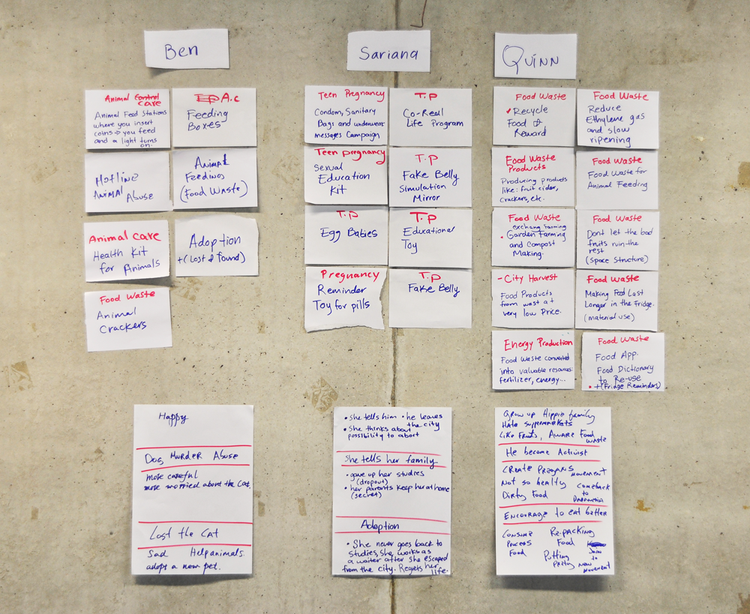 Ben
Animal Control
care
Animal Feed Stations
where you insert
coins & you feed
and a light turns
on
A.C
Feeding
Boxes
Hotline
Animal Abuse
Animal
Feedings
(Food Waste)
Animal care
Health Kit
for Animals
Adoption
+(Lost & Found)
Food Waste
Animal
Crackers
Happy
Dog Murder Abuse
more careful
more worried about the Cat.
Lost the Cat
Sad Help animals
adopts a new pet.
Sariana
Teen Pregnancy
Condom, Sanitary
Bags and underwear
messages Campaign
T.P
Co-Real
Life Program
Teen pregnancy
Sexual
Education
Kit
T.P
Fake Belly
Simulation
Mirror
T.P
Egg Babies
T.P
Educational
Toy
Pregnancy
Reminder
Toy for pills
T.P
Fake Belly
• She tells him • he leaves
the city
• She thinks about
possibility to abort
She tells her family.
• gave up her studies
(dropout)
• her parents keep her at home
(secret)
Adoption
• She never goes back to
studies, she works as
a waiter after she escaped
from the city. Regets her
life.
Quinn
Food Waste
Recycle
Food &
Reward
Food Waste
Reduce
Ethylene gas
and slow
ripening
Food Waste
Products
Producing products
like: fruit cider,
crackers, etc.
Food Waste
Food Waste for
Animal Feeding
Food Waste
exchang farming
Garden Farming
and Compost
Making.
Food Waste
Dont let the bad
fruits ruin the
rest
(Space Structure)
- City Harvest
Food Products
from wast at
very low Price.
Food Waste
Making Food Last
Longer in the Fridge.
(material use)
Energy Production
Food Waste converted
into valuable resources
fertilizer, energy...
Food Waste
Food App.
Food Dictionary
to Re-use
+(Fridge Reminders)
Grow up Hippie family
Hate supermarkets
Like Fruits, Aware Food
waste
He became Activist
Create Programs movement
Not so healty comeback
to
Dirty Food
Encourage to eat better
Consume Re-packing
Process Food
Food
Join
to
Putting
Pretty new
movement